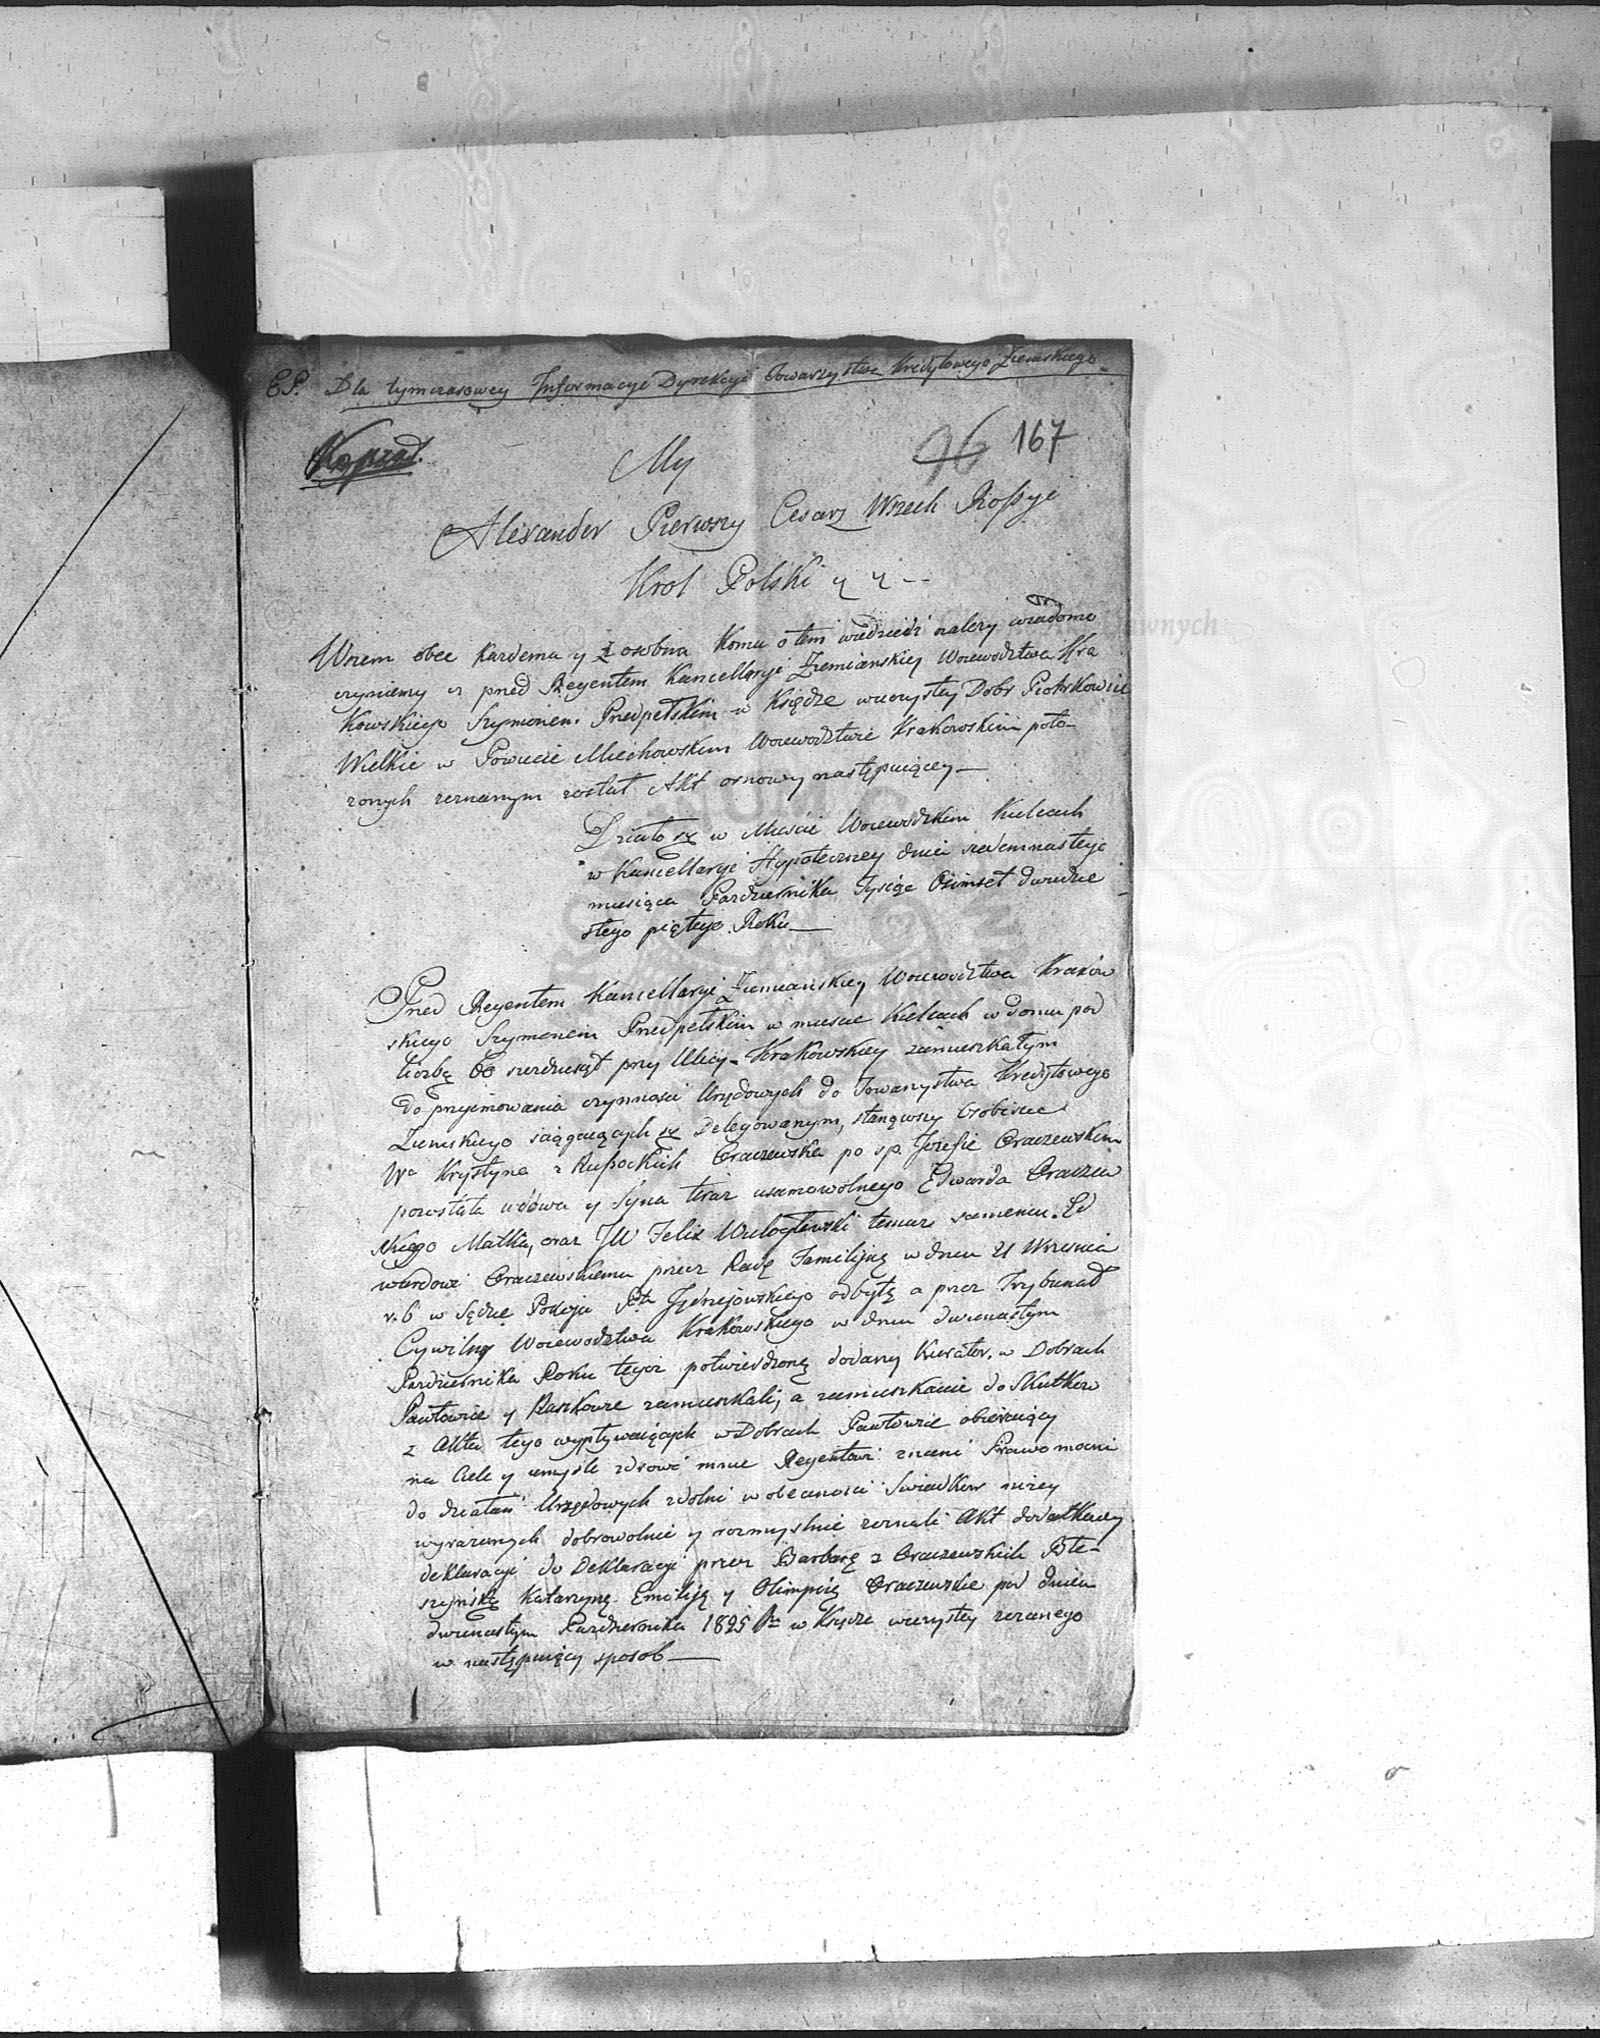 Dla tymczasowey Informacyi Dyrekcyi Towarzystwa Kredytowego Ziemskiego
96 167
My
Alexander Pierwszy Cesarz Wszech Rossyi
Krol Polski y y --
Wszem obec każdemu y z osobna komu o tem wiedzieć należy wiadomo
czyniemy iż przed Regentem Kancellaryi Ziemianskiey Woiewodztwa Kra
kowskiego Szymonem Przedpełskim w Księdze wieczystey Dobr Piotrkowice
Wielkie w Powiecie Miechowskim Woiewodztwie Krakowskim poło-
żonych zeznanym został Akt osnowy następuiącey —
Działo się w Mieście Woiewodzkim Kielcach
w Kancellaryi Hypoteczney dnia siedemnastego
miesiąca Pazdziernika Tysiąc Osimset dwudzie
stego piętego Roku —
Przed Regentem Kancellaryi Ziemiańskiey Woiewodztwa Krakow
skiego Szymonem Przedpełskim w miescie Kielcach w domu pod
liczbą 60 szesdziesiąt przy Ulicy Krakowskiey zamieszkałym
do przyimowania czynnosci Urzędowych do Towarzystwa Kredytowego
Ziemskiego sciągaiących się Delegowanym, stanąwszy Osobiscie
Wa Krystyna z Russockich Oraczewska po sp. Jozefie Oraczewskim
pozostała wdowa y Syna teraz usamowolnego Edwarda Oraczew
skiego Matka, oraz JW Felix Wielogłowski temuż samemu Ed
wardowi Oraczewskiemu przez Radę Familijną w dniu 21 Wrzesnia
r. b w Sądzie Pokoju Ptu Jędrzejowskiego odbytą a przez Trybunał
Cywilny Woiewodztwa Krakowskiego w dniu dwunastym
Pazdziernika Roku tegoż potwierdzoną dodany Kurator, w Dobrach
Pawłowice y Raszkowie zamieszkali, a zamieszkanie do Skutkow
z Aktu tego wypływaiących w Dobrach Pawłowice obieraiący
na Ciele y umysle zdrowi mnie Regentowi znani Prawomocni
do działań Urzędowych zdolni w obecnosci Swiadkow niżey
wyrażonych dobrowolnie y rozmyslnie zeznali Akt dodatkowey
deklaracyi do Deklaracyi przez Barbarę z Oraczewskich Ble-
szyńską Katarzynę Emiliję y Olimpiję Oraczewskie pod dniem
dwunastym Pazdziernika 1825 Ru w Księdze wieczystey zeznanego
w następuiący sposob —